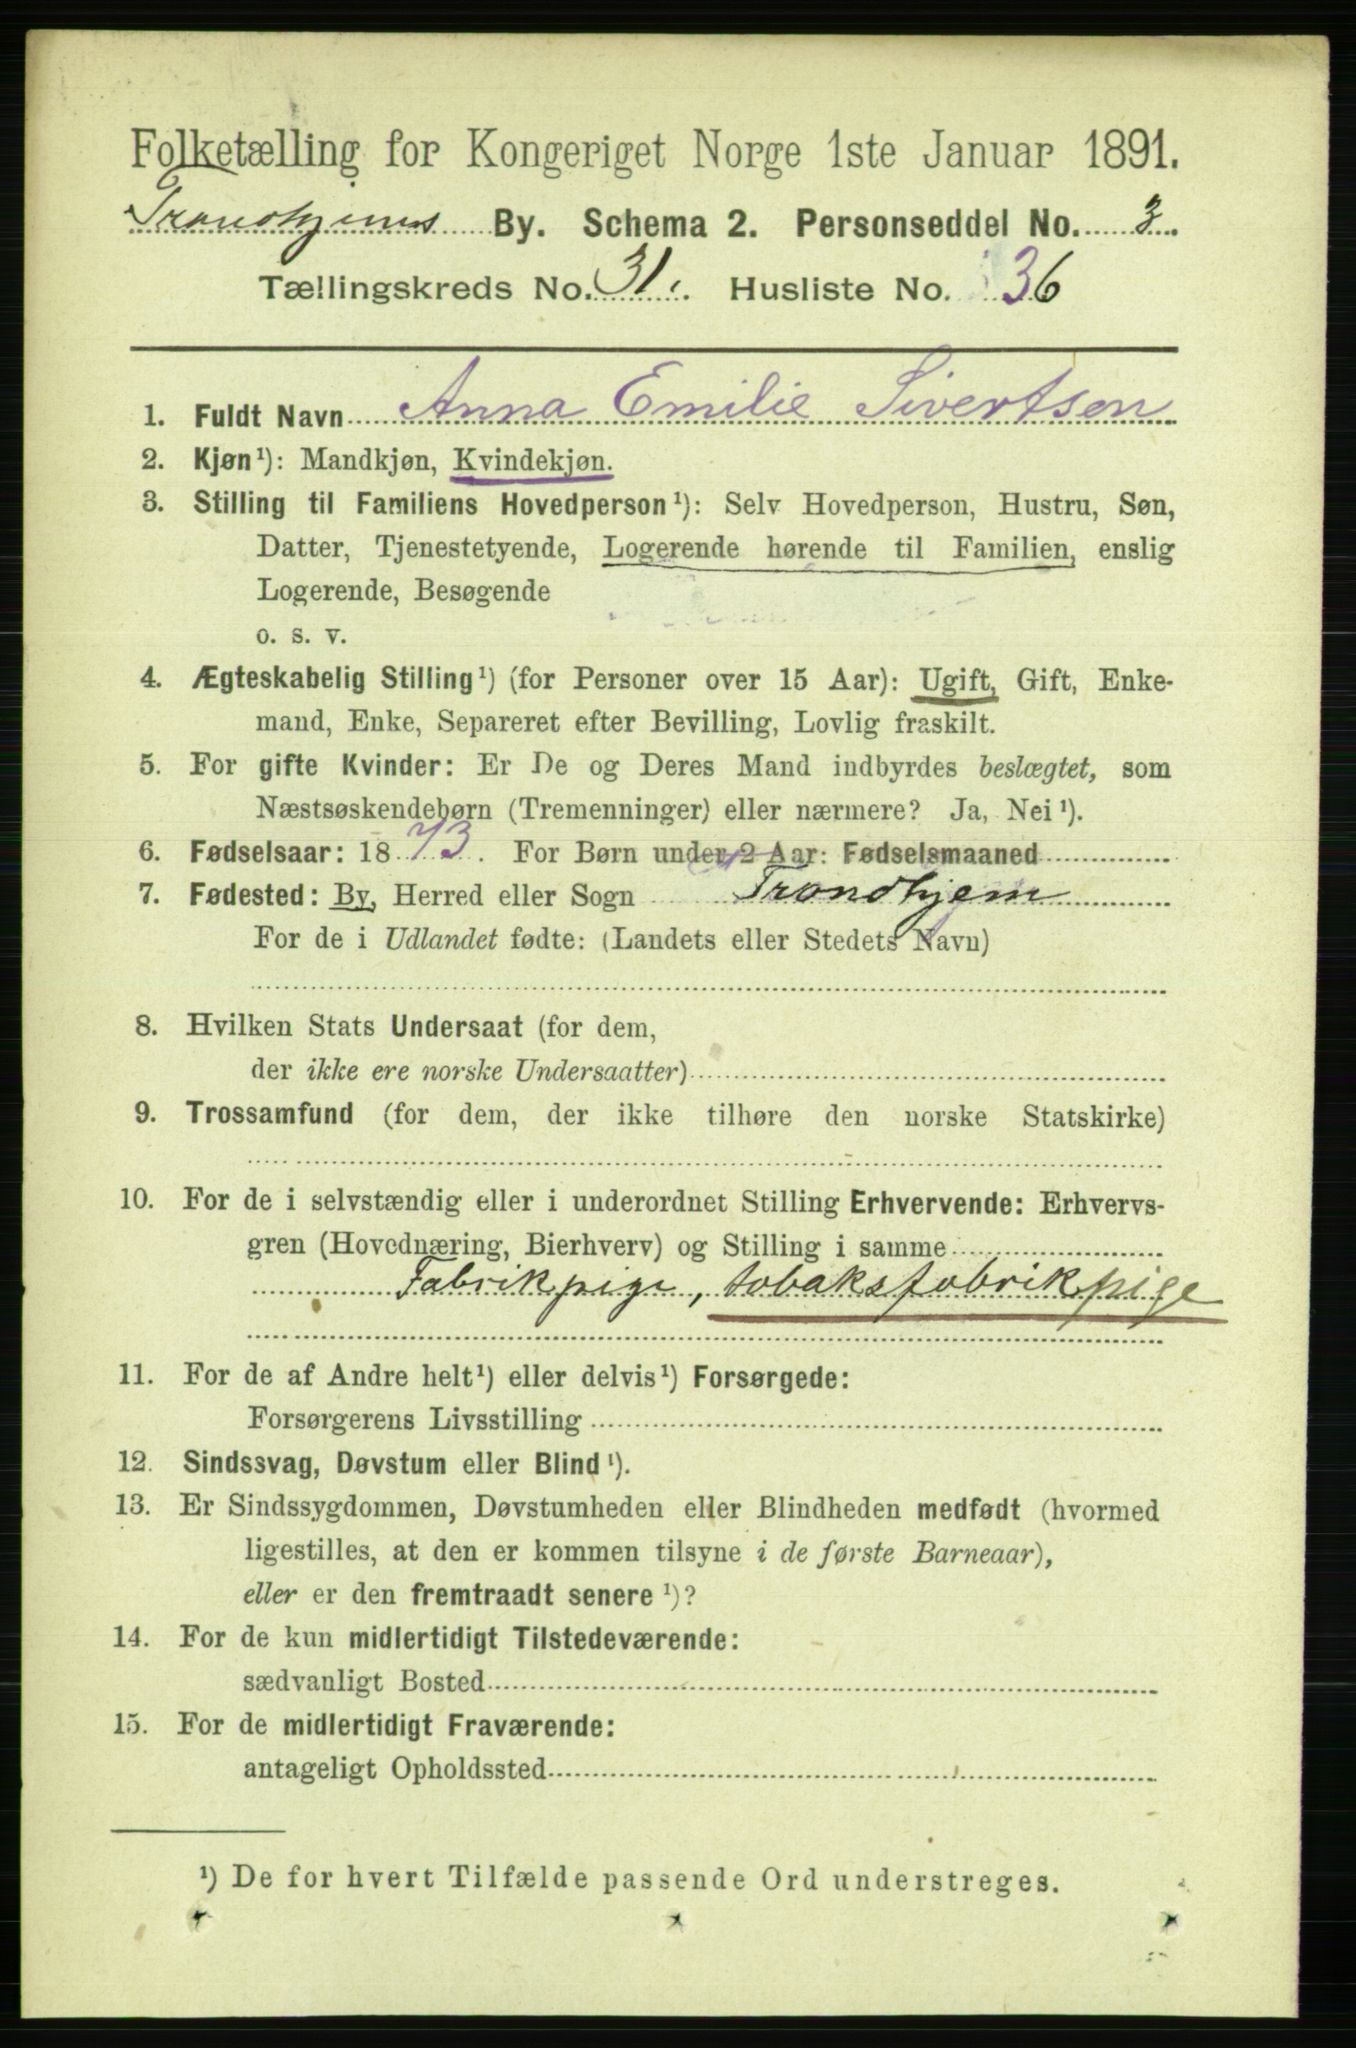 Folketælling for Kongeriget Norge 1ste Januar 1891.
Trondhjems By. Schema 2. Personseddel No. 3.
Tællingskreds No. 31. Husliste No. 36
1. Fuldt Navn Anna Emilie Sivertsen
2. Kjøn¹): Mandkjøn, Kvindekjøn.
3. Stilling til Familiens Hovedperson¹): Selv Hovedperson, Hustru, Søn,
Datter, Tjenestetyende, Logerende hørende til Familien, enslig
Logerende, Besøgende
o. s. v.
4. Ægteskabelig Stilling¹) (for Personer over 15 Aar): Ugift, Gift, Enke-
mand, Enke, Separeret efter Bevilling, Lovlig fraskilt.
5. For gifte Kvinder: Er De og Deres Mand indbyrdes beslægtet, som
Næstsøskendebørn (Tremenninger) eller nærmere? Ja, Nei¹).
6. Fødselsaar: 1873. For Børn under 2 Aar: Fødselsmaaned
7. Fødested: By, Herred eller Sogn Trondhjem
For de i Udlandet fødte: (Landets eller Stedets Navn)
8. Hvilken Stats Undersaat (for dem,
der ikke ere norske Undersaatter)
9. Trossamfund (for dem, der ikke tilhøre den norske Statskirke)
10. For de i selvstændig eller i underordnet Stilling Erhvervende: Erhvervs-
gren (Hovednæring, Bierhverv) og Stilling i samme
Fabrikpige, tobaksfabrikpige
11. For de af Andre helt¹) eller delvis¹) Forsørgede:
Forsørgerens Livsstilling
12. Sindssvag, Døvstum eller Blind¹).
13. Er Sindssygdommen, Døvstumheden eller Blindheden medfødt (hvormed
ligestilles, at den er kommen tilsyne i de første Barneaar),
eller er den fremtraadt senere¹)?
14. For de kun midlertidigt Tilstedeværende:
sædvanligt Bosted
15. For de midlertidigt Fraværende:
antageligt Opholdssted
¹) De for hvert Tilfælde passende Ord understreges.